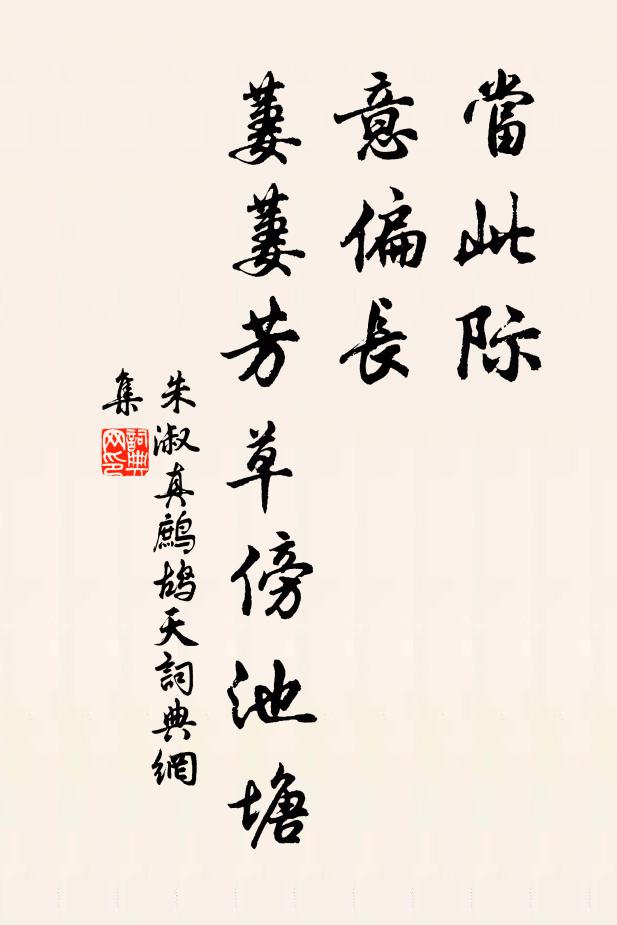 當此际
意偏長
萋萋芳草傍池塘
朱淑真鷓鴣天詞典網
集
詞典
网印